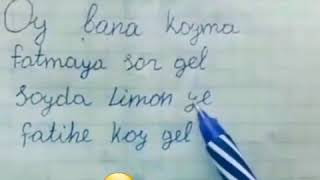 Oy bana kozma
fatmaya sor gel
Soyda Limon ye
fatihe koy gel